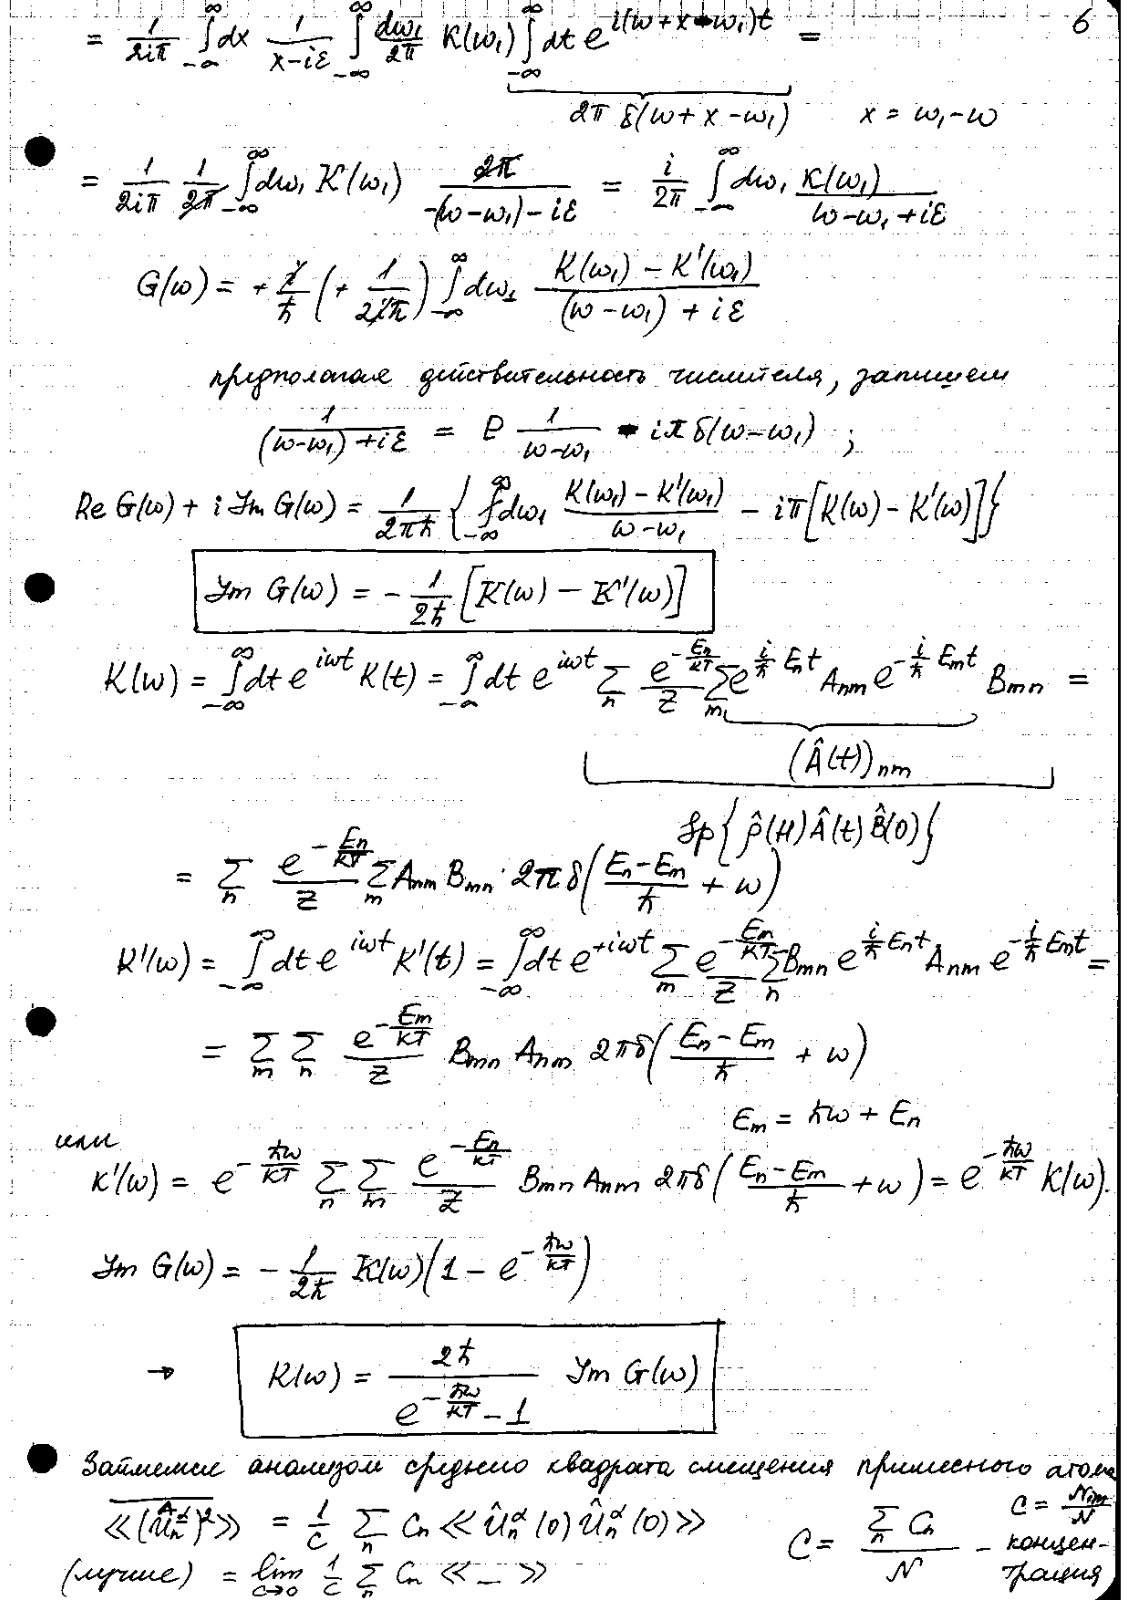 6
= 1/(2iπ) ∫_{-∞}^{∞} dx 1/(x-iε) ∫_{-∞}^{∞} dω₁/(2π) K(ω₁) ∫_{-∞}^{∞} dt e^{i(ω+x-ω₁)t} =
2π δ(ω+x-ω₁)   x = ω₁-ω
= 1/(2iπ) 1/(2π) ∫_{-∞}^{∞} dω₁ K(ω₁) 2π/(-(ω-ω₁)-iε) = i/(2π) ∫_{-∞}^{∞} dω₁ K(ω₁)/(ω-ω₁+iε)
G(ω) = + i/ħ (+ 1/(2iπ)) ∫_{-∞}^{∞} dω₁ (K(ω₁) - K'(ω₁))/((ω-ω₁) + iε)
предполагая действительность числителя, запишем
1/((ω-ω₁)+iε) = P 1/(ω-ω₁) - iπ δ(ω-ω₁) ;
Re G(ω) + i Im G(ω) = 1/(2πħ) { ∫_{-∞}^{∞} dω₁ (K(ω₁) - K'(ω₁))/(ω-ω₁) - iπ[K(ω) - K'(ω)] }
Im G(ω) = - 1/(2ħ) [K(ω) - K'(ω)]
K(ω) = ∫_{-∞}^{∞} dt e^{iωt} K(t) = ∫_{-∞}^{∞} dt e^{iωt} Σ_n e^{-En/kT}/Z Σ_m e^{(i/ħ) En t} Anm e^{-(i/ħ) Em t} Bmn =
(Â(t))nm
Sp{ ρ̂(H) Â(t) B̂(0) }
= Σ_n e^{-En/kT}/Z Σ_m Anm Bmn · 2π δ((En-Em)/ħ + ω)
K'(ω) = ∫_{-∞}^{∞} dt e^{iωt} K'(t) = ∫_{-∞}^{∞} dt e^{+iωt} Σ_m e^{-Em/kT}/Z Σ_n Bmn e^{(i/ħ) En t} Anm e^{-(i/ħ) Em t} =
= Σ_m Σ_n e^{-Em/kT}/Z Bmn Anm 2πδ((En-Em)/ħ + ω)
Em = ħω + En
или
K'(ω) = e^{-ħω/kT} Σ_n Σ_m e^{-En/kT}/Z Bmn Anm 2πδ((En-Em)/ħ + ω) = e^{-ħω/kT} K(ω).
Im G(ω) = - 1/(2ħ) K(ω)(1 - e^{-ħω/kT})
→ K(ω) = 2ħ/(e^{-ħω/kT} - 1) Im G(ω)
Займемся анализом среднего квадрата смещения примесного атома
≪(û_n^α)²≫ = 1/c Σ_n Cn ≪ û_n^α(0) û_n^α(0) ≫   C = Σ_n Cn / N - концентрация   C = Nim/N
(лучше) = lim_{c→0} 1/c Σ_n Cn ≪ _ ≫